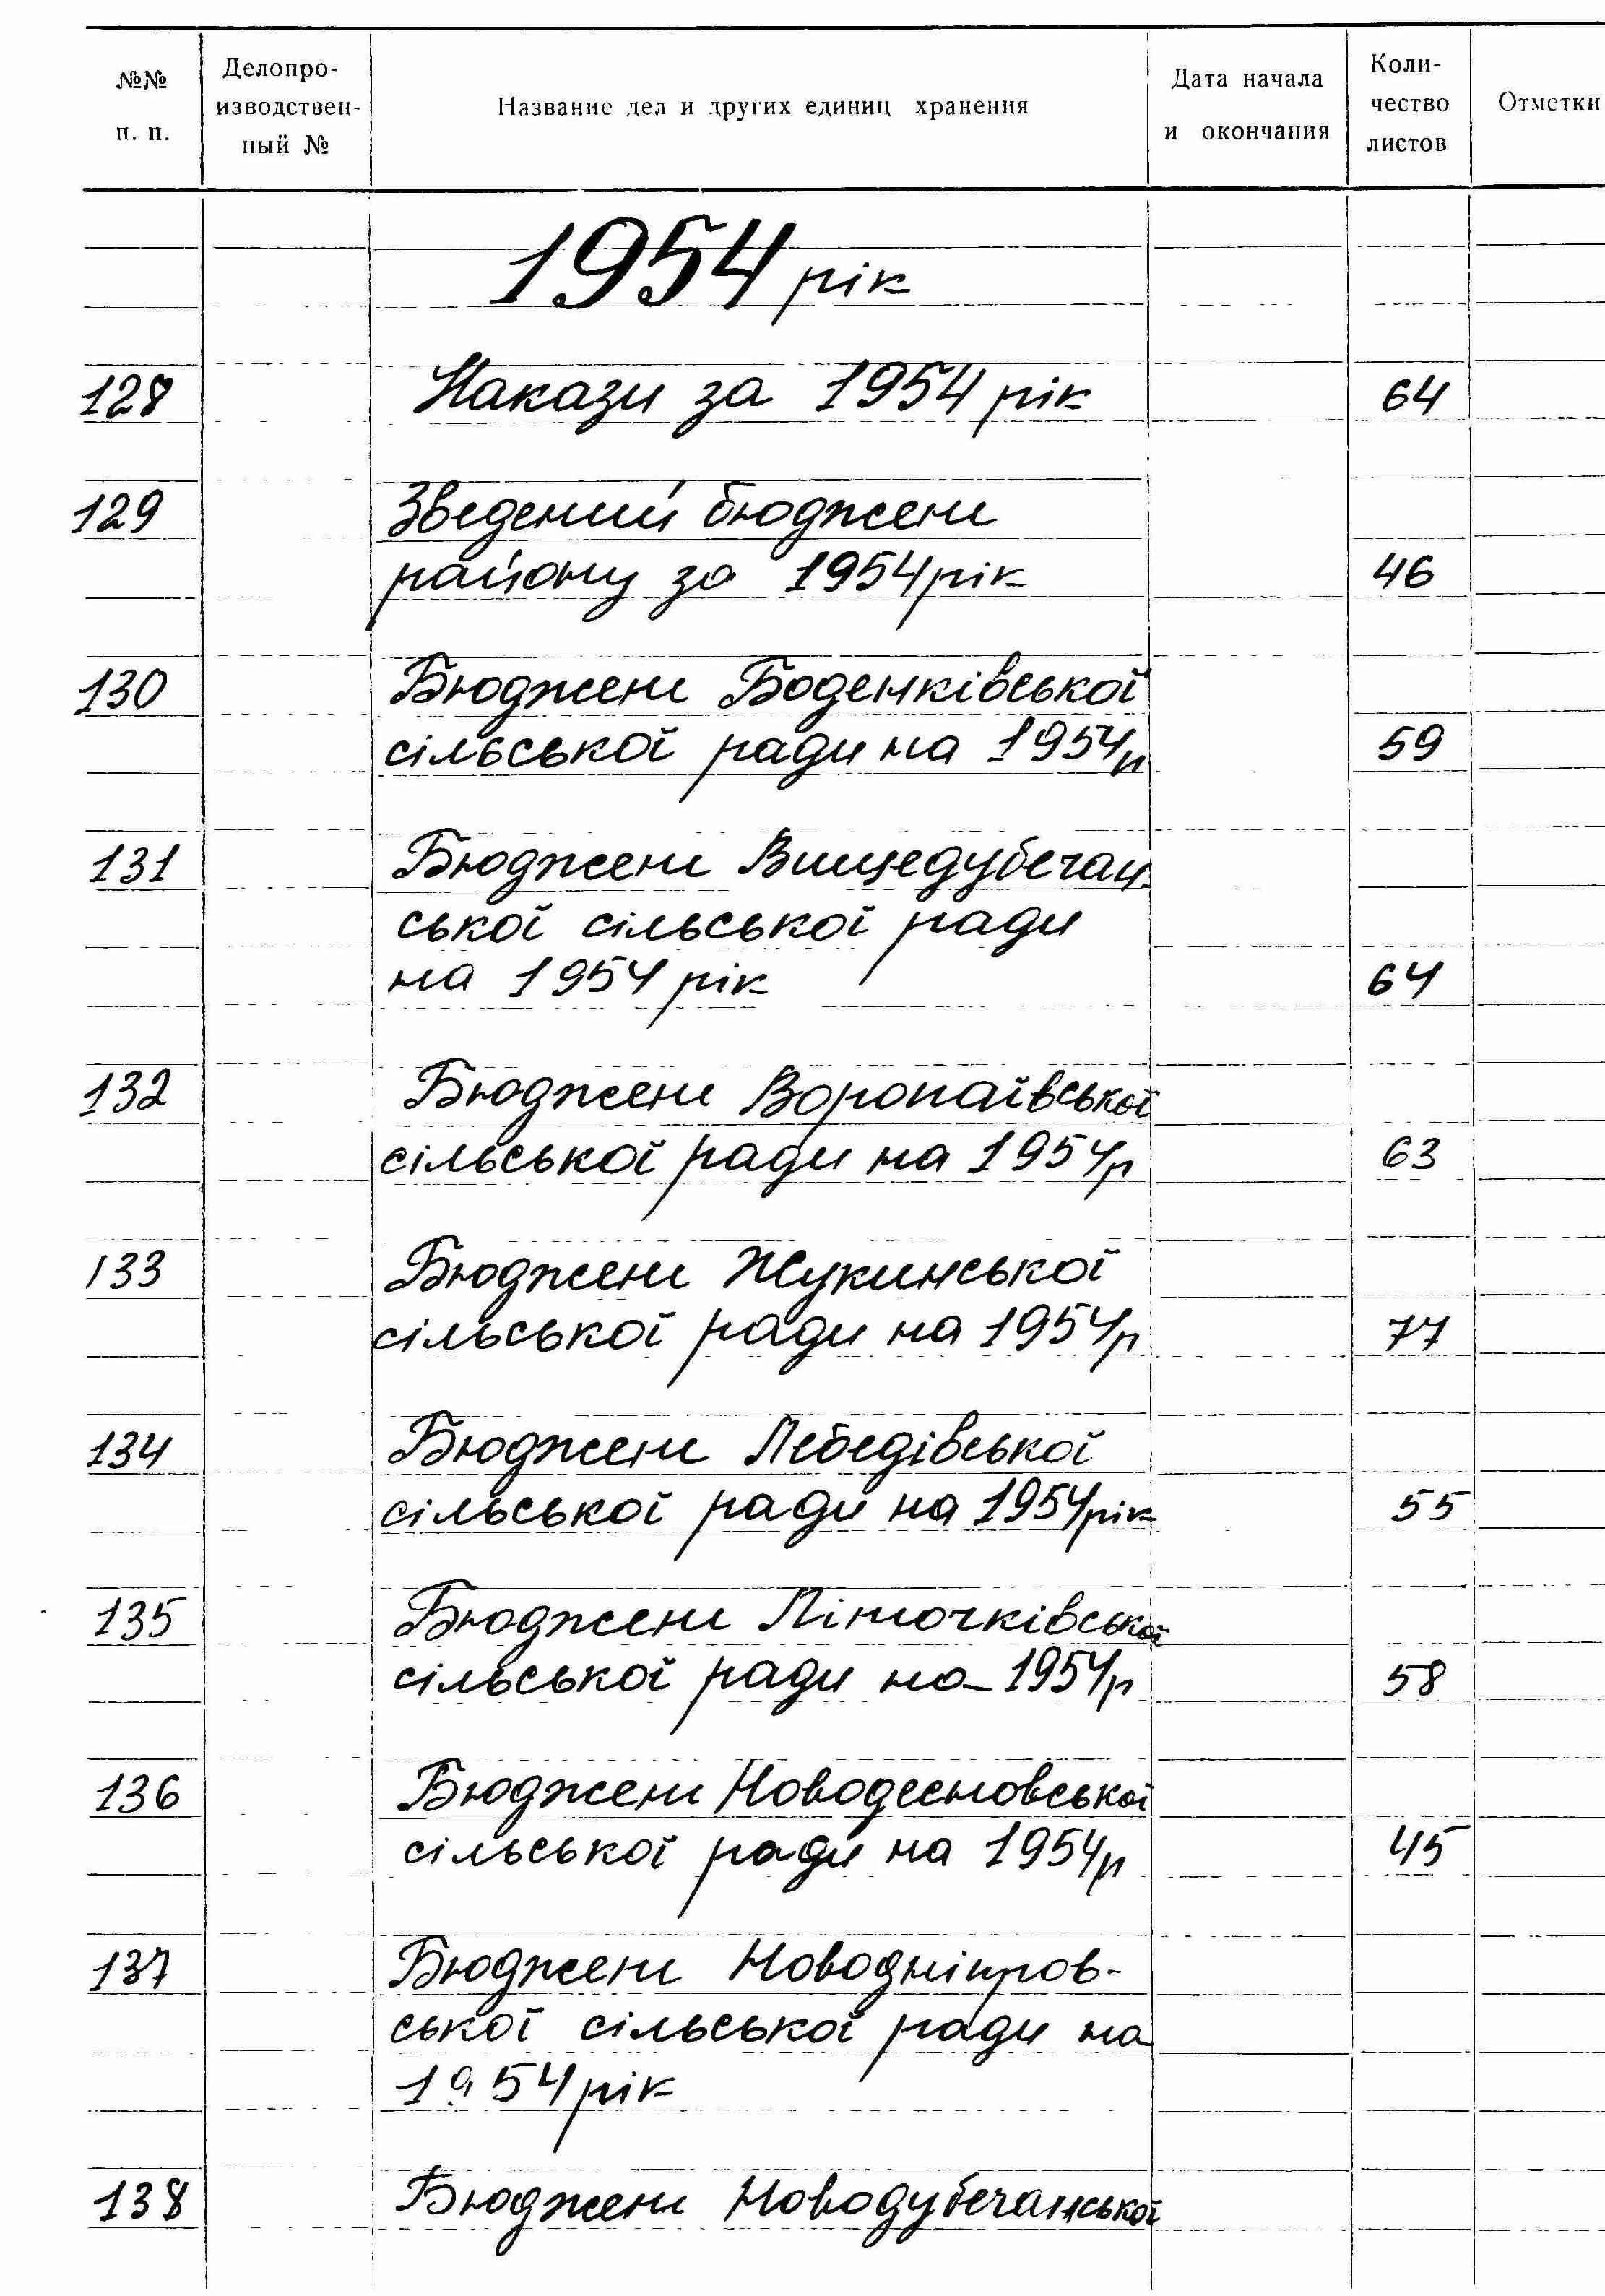 №№ п. п.
Делопро-
изводствен-
ный №
Название дел и других единиц хранения
Дата начала
и окончания
Коли-
чество
листов
Отметки
1954 рік
128 Накази за 1954 рік 64
129 Зведений бюджет
району за 1954 рік 46
130 Бюджет Боденківської
сільської ради на 1954р 59
131 Бюджет Вищедубечан-
ської сільської ради
на 1954 рік 64
132 Бюджет Воропаївської
сільської ради на 1954р 63
133 Бюджет Жукинської
сільської ради на 1954р 77
134 Бюджет Лебедівської
сільської ради на 1954рік 55
135 Бюджет Літочківської
сільської ради на 1954р 58
136 Бюджет Новодесновської
сільської ради на 1954р 45
137 Бюджет Новодніпров-
ської сільської ради на
1954 рік
138 Бюджет Новодубечанської